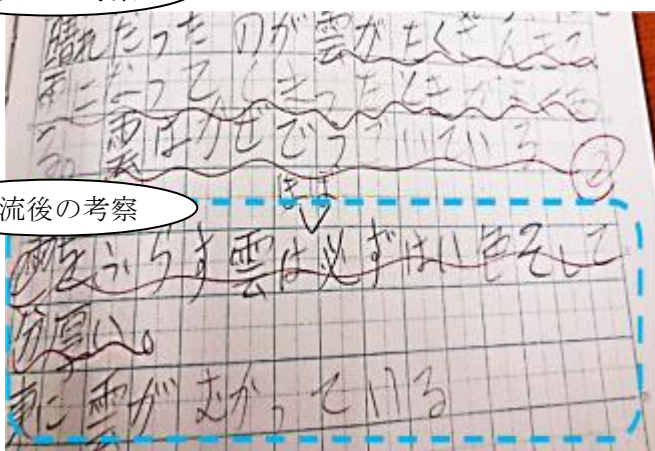 晴れだったのが雲がたくさんきて
雨になってくもったときがある
る。雲はかぜでうごいている
ほぼ
流後の考察
雨をふらす雲は必ずはい色そして
分厚い。
東に雲がむかっている